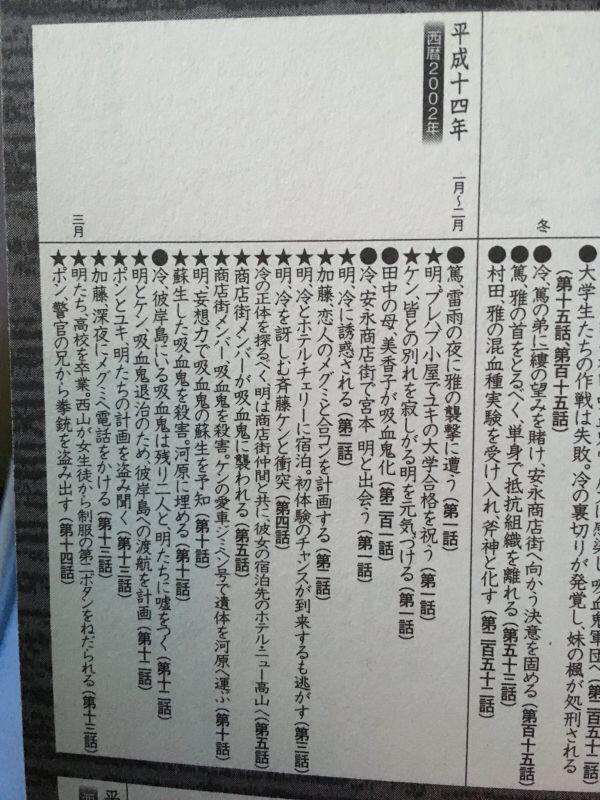 大学生たちの作戦は失敗。冷の裏切りが発覚し、妹の楓が処刑される
(第十五話、第百十五話)
冬
●冷、篤の弟に一縷の望みを賭け、安永商店街へ向かう決意を固める(第百十五話)
●篤、雅の首をとるべく、単身で抵抗組織を離れる(第五十三話)
●村田、雅の混血種実験を受け入れ、斧神と化す(第二百五十二話)
平成十四年
西暦2002年
一月〜二月
●篤、雷雨の夜に雅の襲撃に遭う(第一話)
★明、プレハブ小屋でユキの大学合格を祝う(第一話)
★ケン、皆との別れを寂しがる明を元気づける(第一話)
●田中の母、美香子が吸血鬼化(第二百一話)
●冷、安永商店街で宮本 明と出会う(第一話)
★明、冷に誘惑される(第二話)
★加藤、恋人のメグミと合コンを計画する(第二話)
★明、冷とホテル・チェリーに宿泊。初体験のチャンスが到来するも逃がす(第三話)
★明、冷を訝しむ斉藤ケンと衝突(第四話)
★冷の正体を探るべく、明は商店街仲間と共に、彼女の宿泊先のホテルニュー高山へ(第五話)
★商店街メンバーが吸血鬼に襲われる(第五話)
商店街メンバー、吸血鬼を殺害。ケンの愛車ジミヘン号で遺体を河原へ運ぶ(第十話)
★明、妄想力で吸血鬼の蘇生を予知(第十話)
★蘇生した吸血鬼を殺害。河原に埋める(第十一話)
●冷、彼岸島にいる吸血鬼は残り二人と、明たちに嘘をつく(第十二話)
★明とケン、吸血鬼退治のため、彼岸島への渡航を計画(第十二話)
★ポンとユキ、明たちの計画を盗み聞く(第十三話)
★加藤、深夜にメグミへ電話をかける(第十三話)
三月
★明たち、高校を卒業。西山が女生徒から制服の第二ボタンをねだられる(第十三話)
★ポン、警官の兄から拳銃を盗み出す(第十四話)
平
西